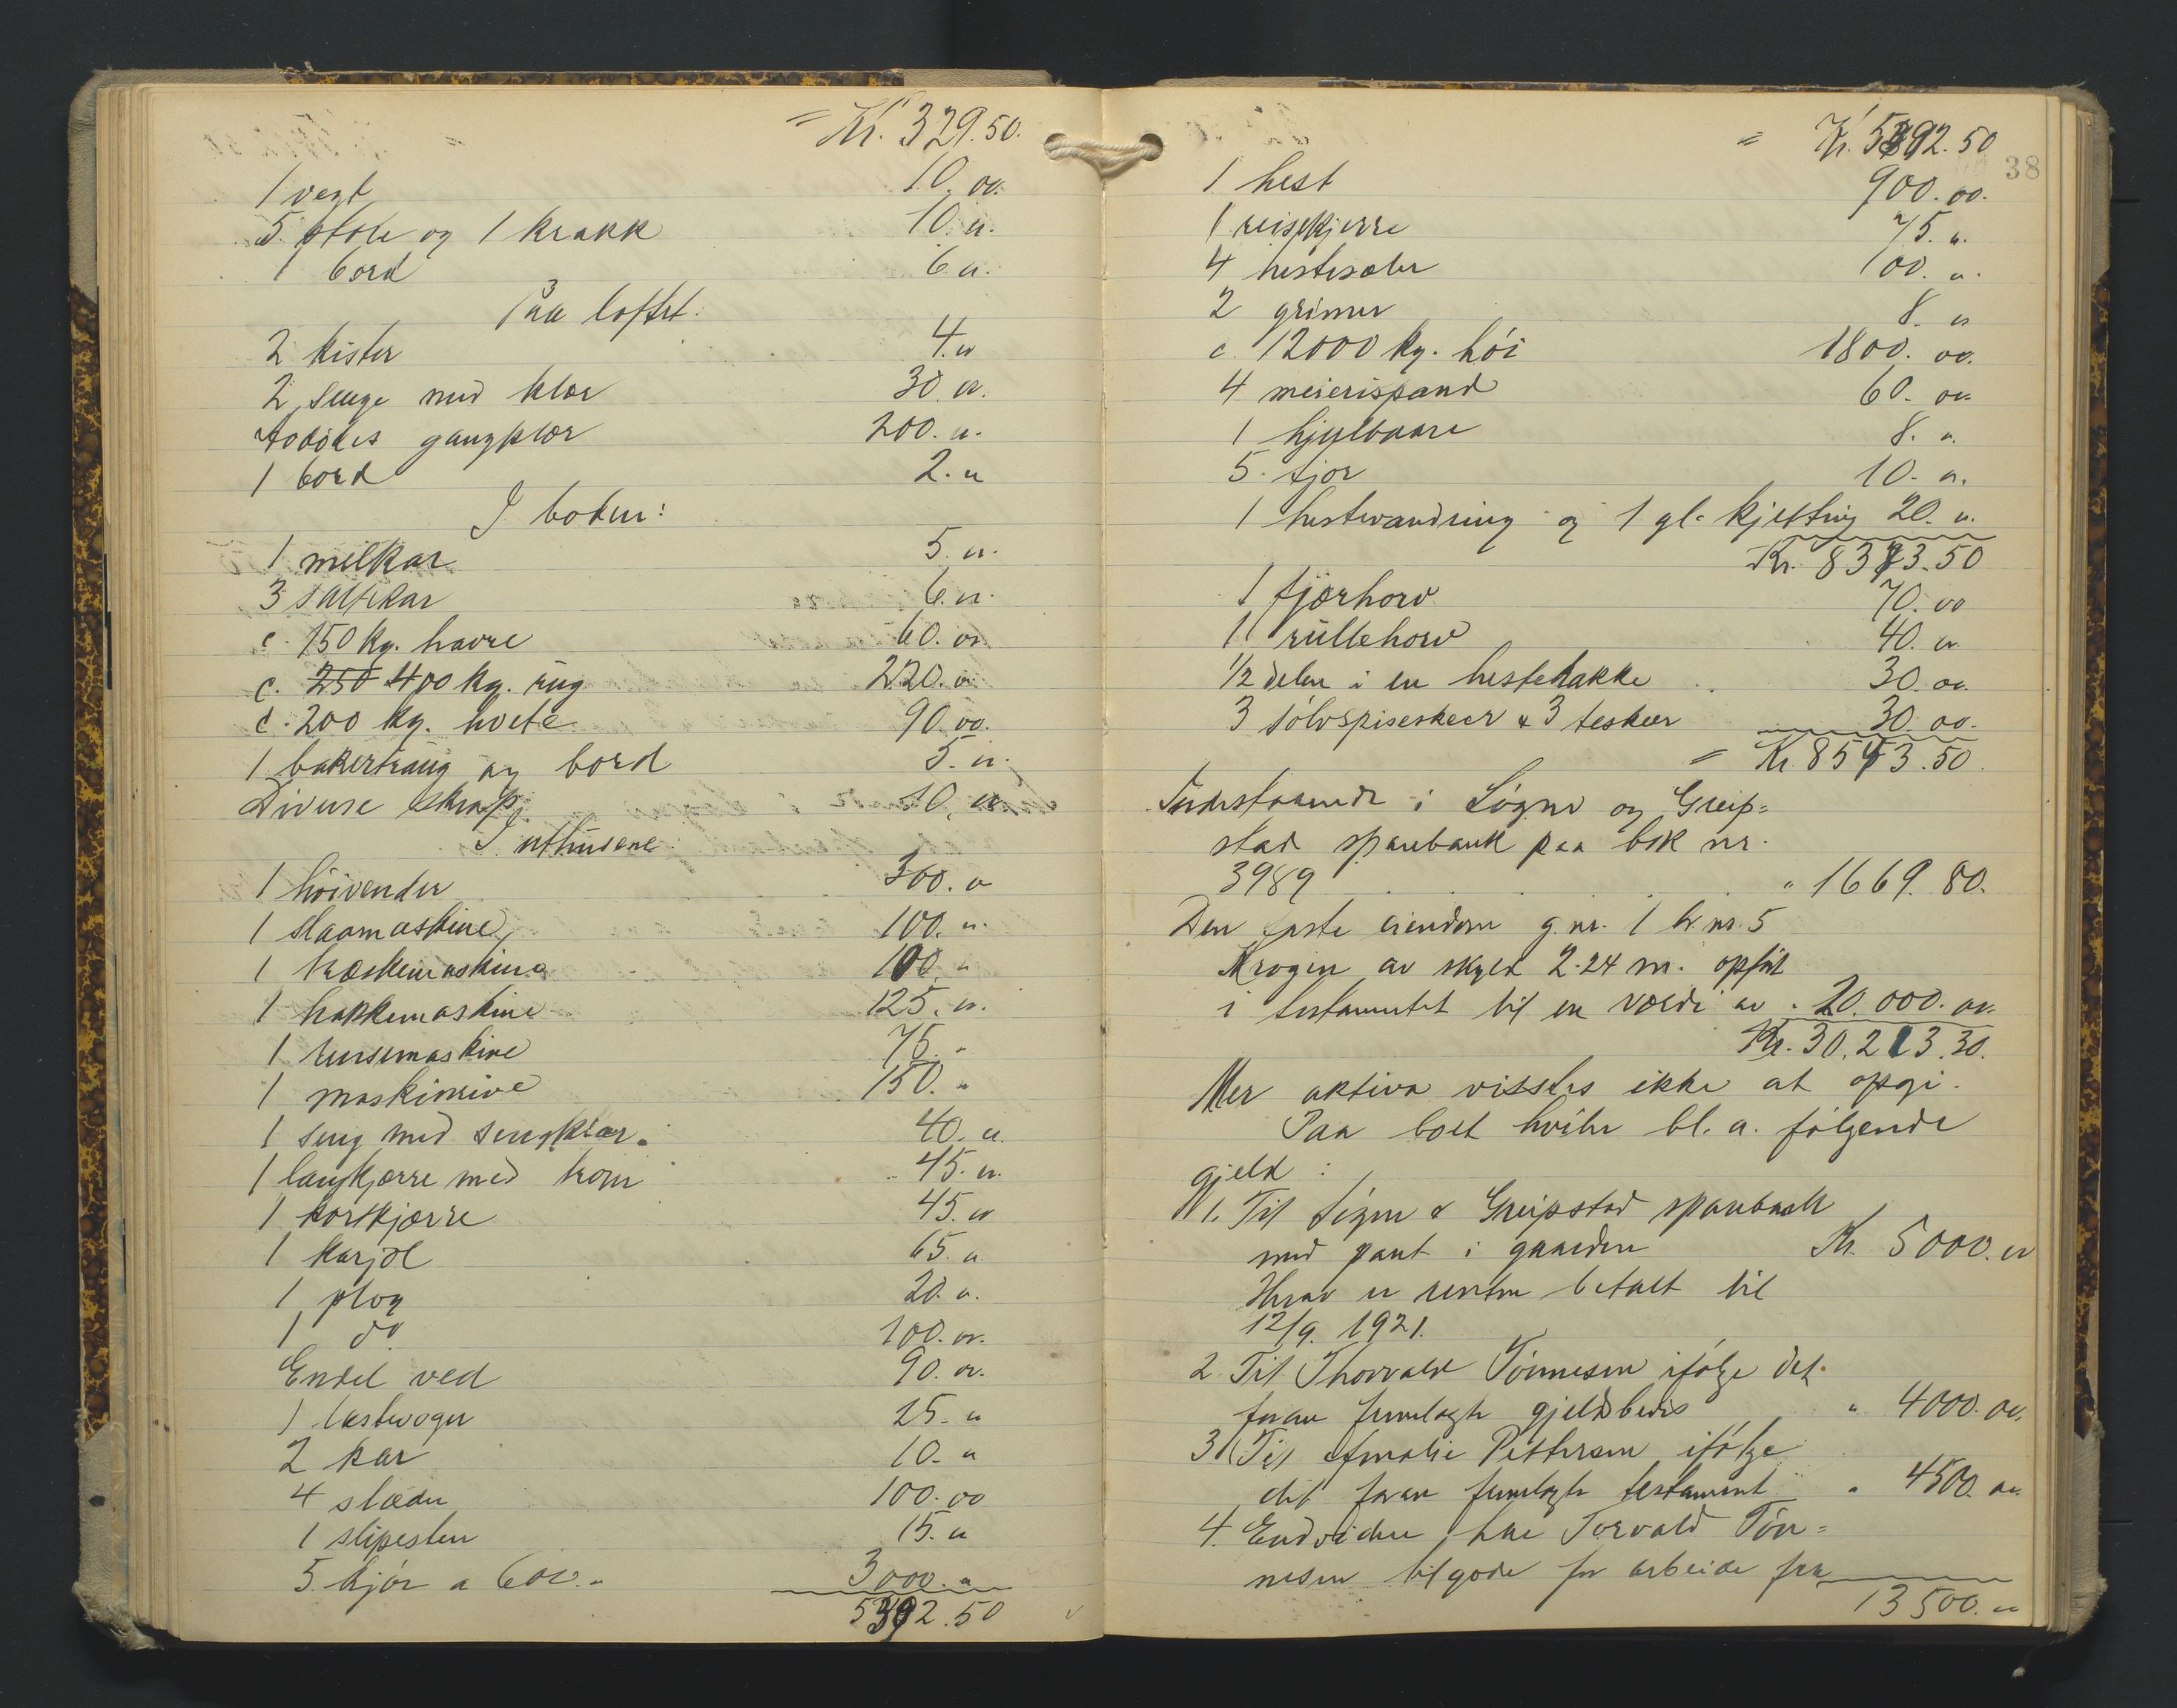 = Kr. 329.50.
1 vegt 10.00.
5 stole og 1 krakk 10.
1 bord 6.
Paa loftet:
2 kister 4.
2 senge med klær 30.
Avdødes gangklær 200.
1 bord 2.
I boden:
1 melkar 5.
3 saltekar 6.
c. 150 kg. havre 60.
c. 250 400 kg. rug 220.
c. 200 kg. hvete 90.00.
1 bakertraug og bord 5.
Diverse skrap 10.
I uthusene:
1 høivender 300.
1 slaamaskine 100.
1 træskemaskine 100
1 hakkemaskine 125.
1 rensemaskine 75.
1 maskinrive 150.
1 seng med sengklær. 40.
1 langkjærre med kom 45.
1 kortkjærre 45.
1 karjol 65.
1 plog 20.
1 do 100.
Endel ved 90.
1 lastevogn 25.
2 kar 10.
4 slæder 100.00
1 slipesten 15.
5 kjør a 600. 3000.
5392.50
38
= Kr. 5392.50
1 hest 900.00.
1 reisekjerre 75.
4 hesteseler 100.
2 grimer 8.
c. 12000 kg. høi 1800.00.
4 meierispand 60.
1 hjulbaare 8.
5 tjor 10.
1 hestvandring og 1 gl. kjetting 20.
Kr. 8373.50
1 fjærhorv 70.00
1 rullehorv 40.
1/2 delen i en hestehakke 30.
3 sølvspiseskeer & 3 teskeer 30.00.
= Kr. 8543.50
Indestaaende i Søgne og Greip=
stad sparebank paa bok nr.
3989 " 1669.80.
Den faste eiendom g.nr. 1 br.nr. 5
Krogen av skyld 2.24 m. opført
i testamentet til en værdi av " 20.000.
Kr. 30.213.30.
Mer aktiva vistes ikke at opgi.
Paa boet hviler bl. a. følgende
gjeld:
1. Til Søgne & Greipstad sparebank
med pant i gaarden Kr. 5000.
Herav er renten betalt til
12/9. 1921.
2. Til Thorvald Tønnesen ifølge det
foran fremlagte gjeldsbevis " 4000.
3. Til Amalie Pettersen ifølge
det foran fremlagte testament " 4500.
4. Endvidere har Torvald Tøn=
nesen tilgode for arbeide fra
13500.